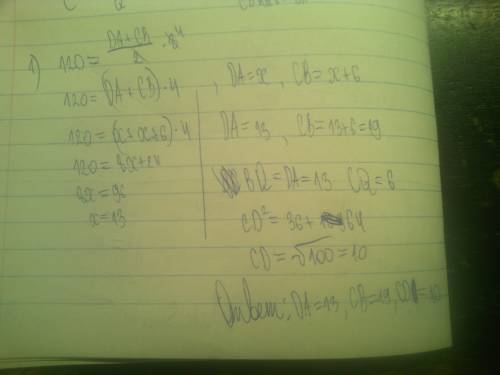 1) 120 = (DA+CB)/2 · 8⁴
120 = (DA + CB) · 4
120 = (x+x+6) · 4
120 = 8x+24
8x = 96
x = 13
, DA = x , CB = x+6
DA = 13 , CB = 13+6 = 19
BQ = DA = 13 CQ = 6
CD² = 36 + 64
CD = √100 = 10
Ответ: DA = 13, CB = 19, CD = 10